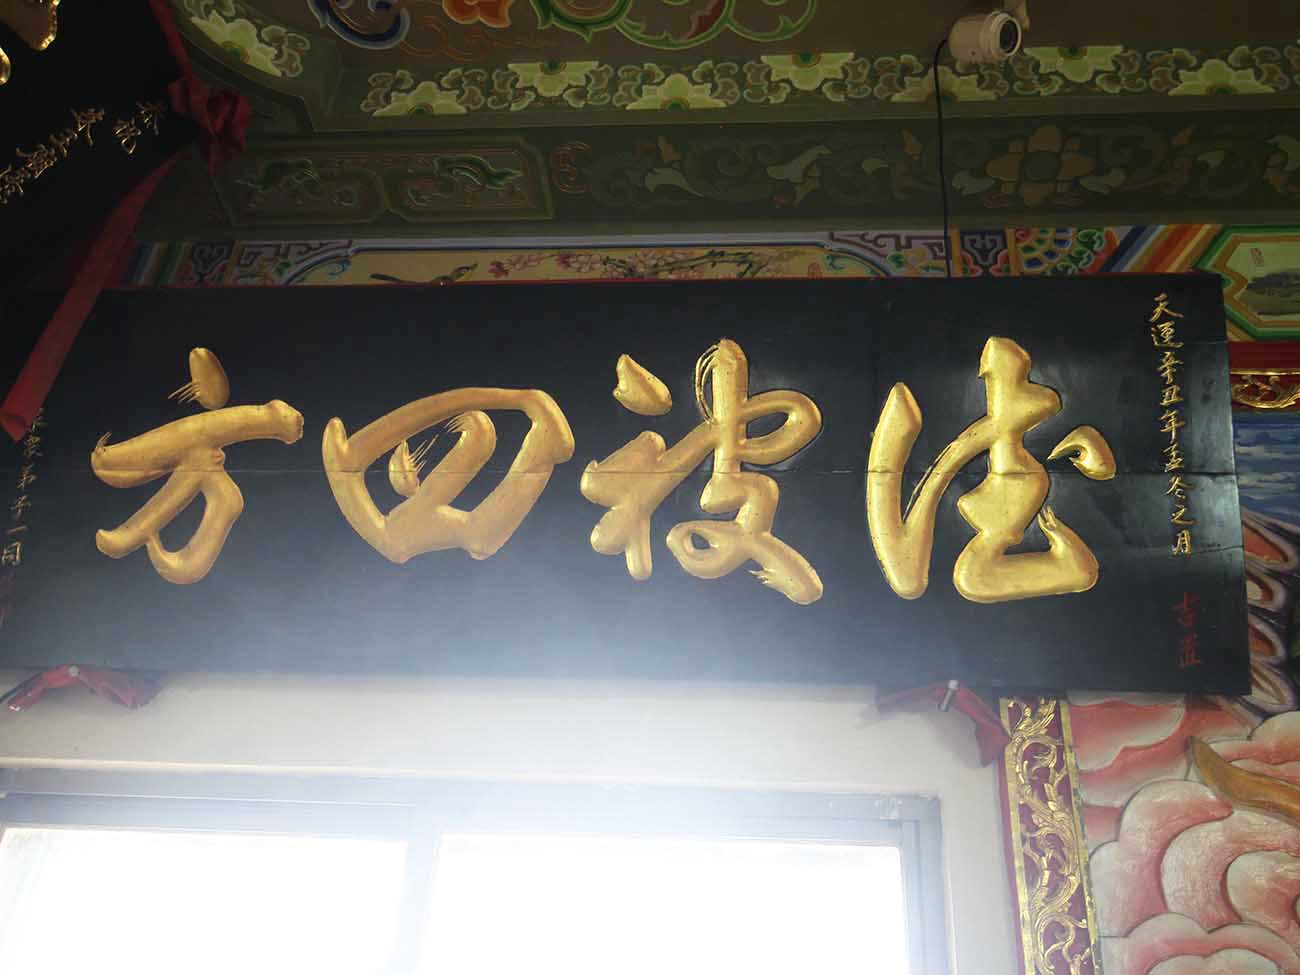 德被四方
天運辛丑年孟冬之月
吉
弟子一同